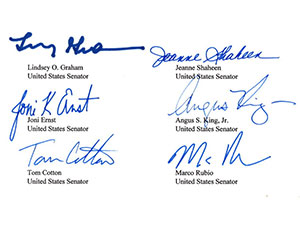 Lindsey O. Graham
United States Senator
Jeanne Shaheen
Jeanne Shaheen
United States Senator
Joni K. Ernst
Joni Ernst
United States Senator
Angus King
Angus S. King, Jr.
United States Senator
Tom Cotton
Tom Cotton
United States Senator
Marco Rubio
United States Senator